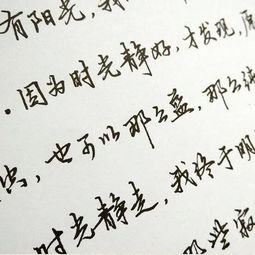 有阳光，我
。因为时光静好，才发现，原
也可以那么蓝，那么纯
时光静走，我终于明
那些寂